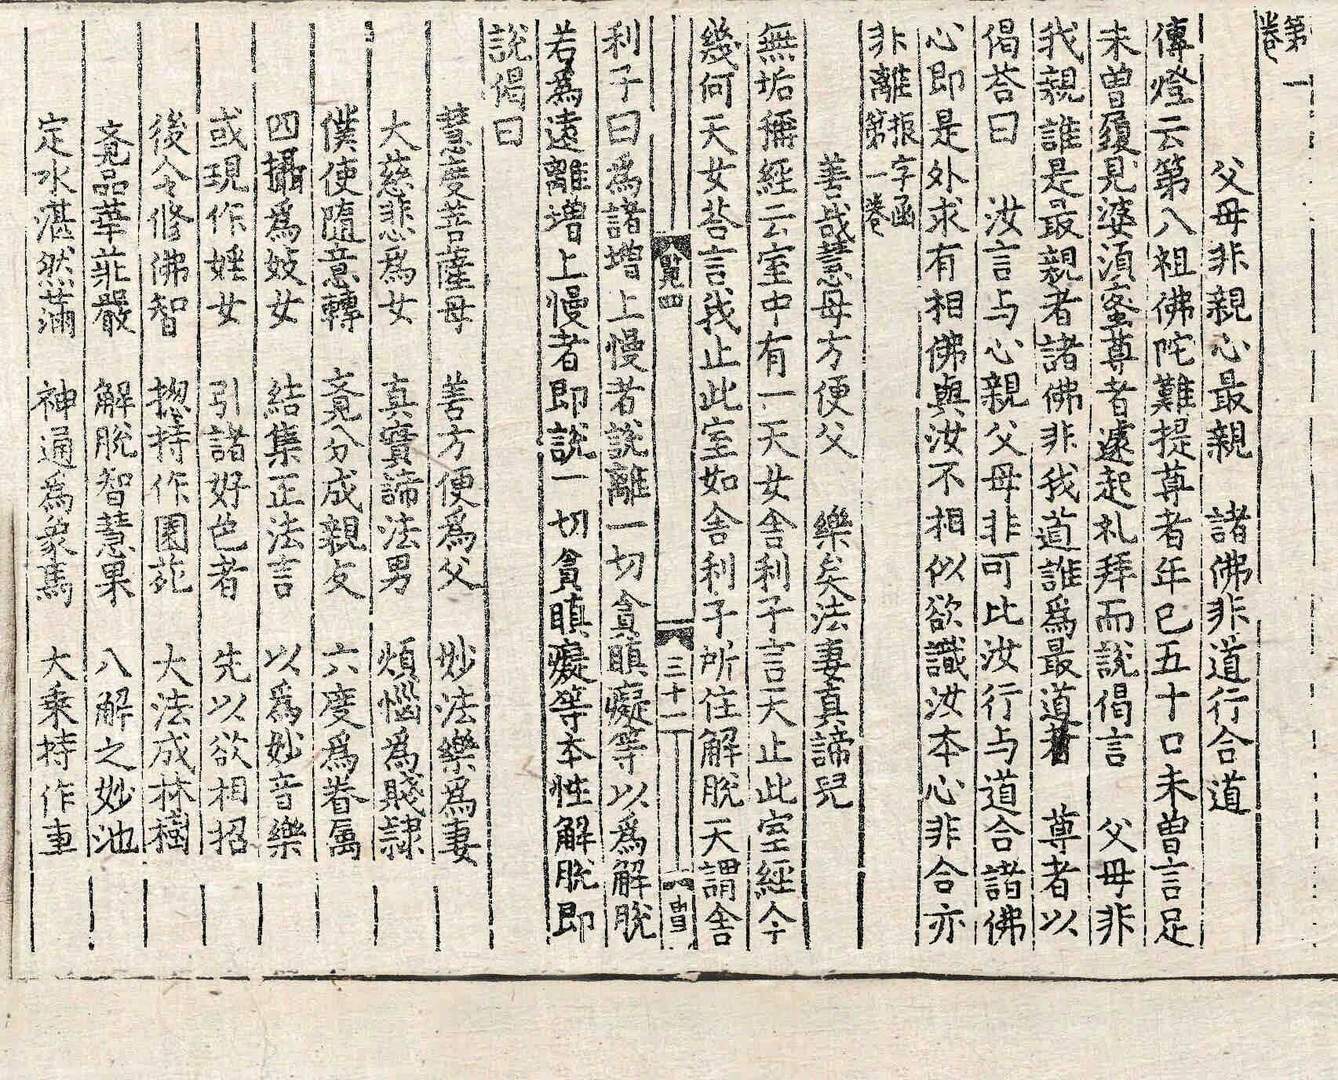 第一
卷
父母非親心最親　諸佛非道行合道
傳燈云第八祖佛陀難提尊者年已五十口未曾言足
未曾履見婆須蜜尊者遽起礼拜而說偈言　父母非
我親誰是最親者諸佛非我道誰爲最道者　尊者以
偈荅曰　汝言与心親父母非可比汝行与道合諸佛
心即是外求有相佛與汝不相似欲識汝本心非合亦
非離振字函
第一卷
善哉慧母方便父　樂矣法妻真諦兒
無垢稱經云室中有一天女舍利子言天止此室經今
幾何天女荅言我止此室如舍利子所住解脫天謂舍
三十一
利子曰爲諸增上慢者說離一切貪瞋癡等以爲解脫
若爲遠離增上慢者即說一切貪瞋癡等本性解脫即
說偈曰
慧度菩薩母　善方便爲父　妙法樂爲妻
大慈悲爲女　真實諦法男　煩惱爲賤隸
僕使隨意轉　竟分成親友　六度爲眷屬
四攝爲妓女　結集正法言　以爲妙音樂
或現作婬女　引諸好色者　先以欲相招
後令修佛智　揔持作園苑　大法成林樹
竟品華莊嚴　解脫智慧果　八解之妙池
定水湛然滿　神通爲象馬　大乘持作車